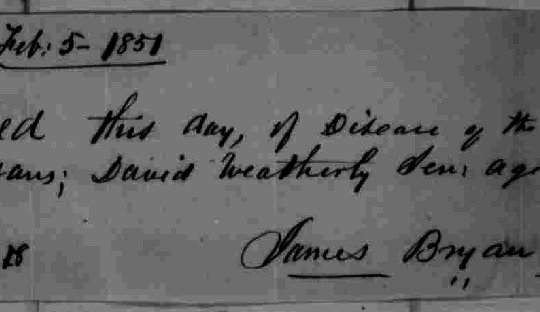 Feb: 5 - 1851
ed this day, of Disease of the
ans; David Weatherly Sen: age
18
James Bryan